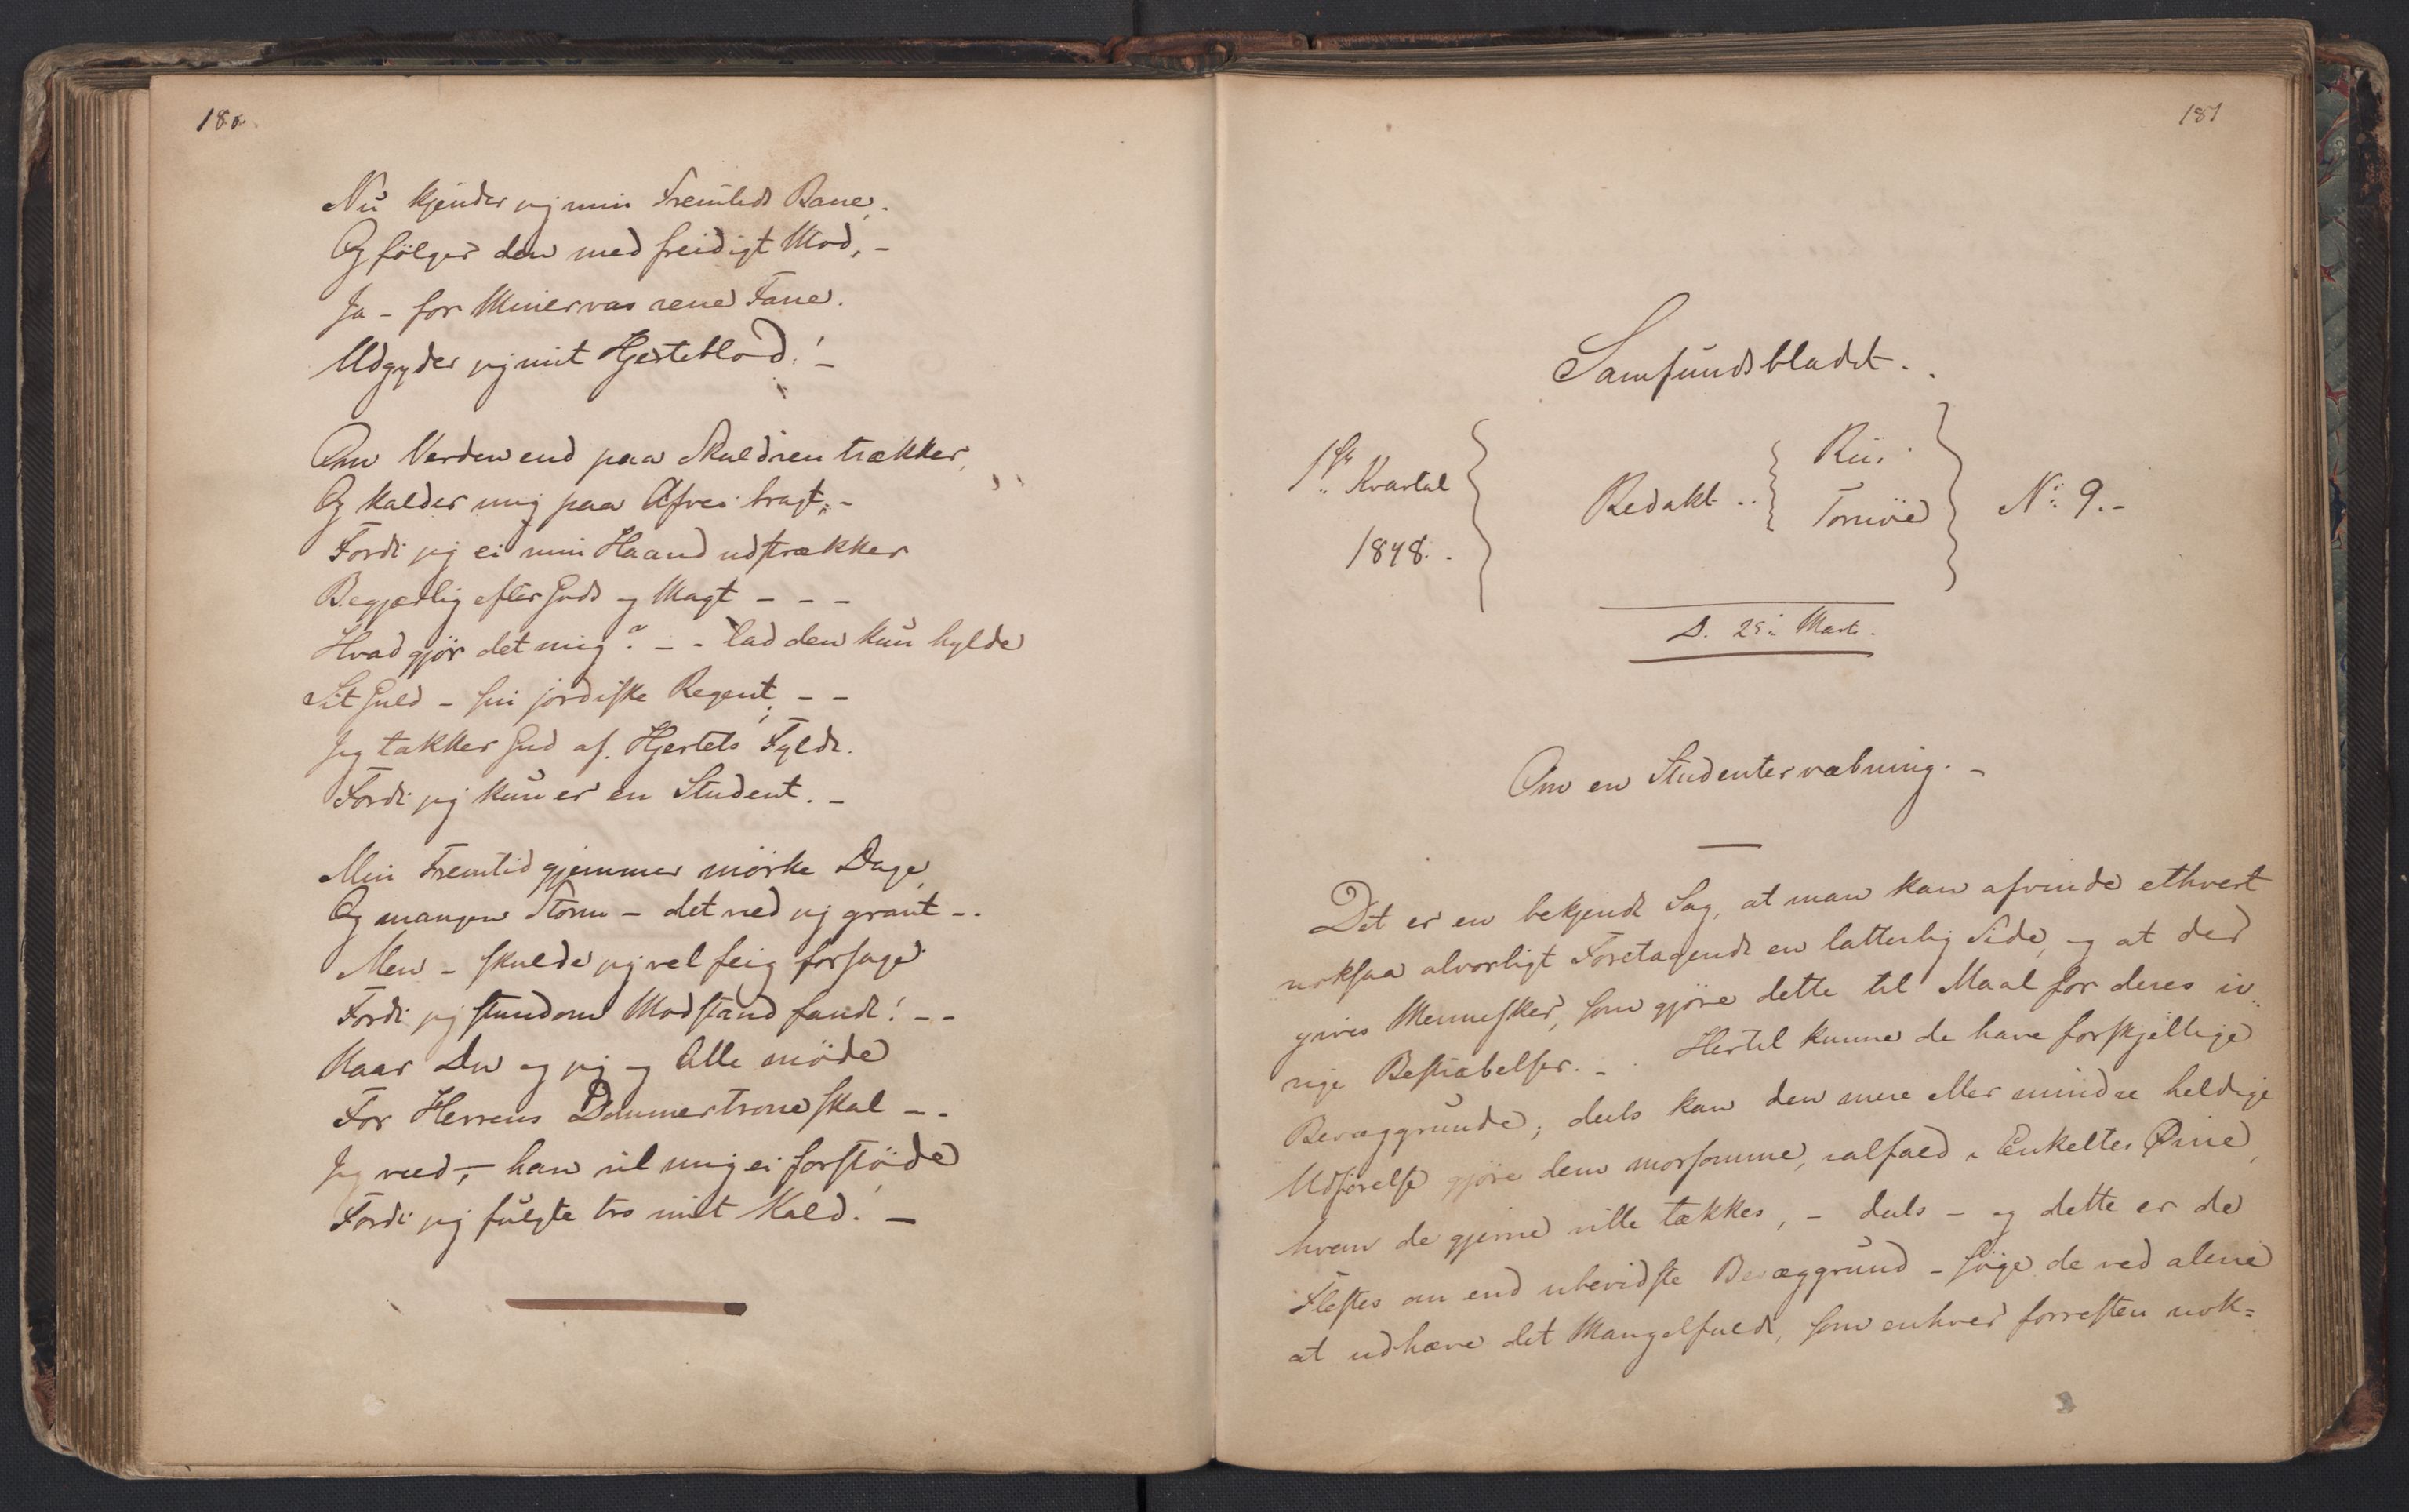 180.
Nu kjender jeg min Fremtids Bane.
Og følger den med freidigt Mod, -
Ja - for Minervas rene Fane.
Udgyder jeg mit Hjerteblod! -
Om Verden end paa Skuldren trækker,
Og kalder mig paa Afvei bragt, -
Fordi jeg ei min Haand udstrækker
Begjærlig efter Gods og Magt - - -
Hvad gjør det mig? - - lad den kun hylde
Sit Guld - sin jordiske Regent; - -
Jeg takker Gud af Hjertets Fylde.
Fordi jeg kun er en Student. -
Min Fremtid gjemmer mörke Dage,
Og mangen Storm - det ved jeg grant -.
Men - skulde jeg vel feig forsage
Fordi jeg stundom Modstand fandt! - -
Naar Du og jeg og Alle möde
For Herrens Dommertrone skal - -
Jeg veed, - han vil mig ei forstöde
Fordi jeg fulgte tro mit Kald! -
181
Samfundsbladet.
1ste Kvartal
1848.
Redakt.
Riis
Tornöe
No 9. -
D. 25 Marts.
Om en Studentervæbning. -
Det er en bekjendt Sag, at man kan afvinde ethvert
noksaa alvorligt Foretagende en latterlig Side, og at der
gives Mennesker, som gjøre dette til Maal for deres iv-
rige Bestræbelser. - Hertil kunne de have forskjellige
Bevæggrunde; dels kan den mere eller mindre heldige
Udførelse gjöre dem morsomme, ialfald i Enkeltes Øine,
hvem de gjerne ville tækkes, - dels - og dette er de
Flestes om end ubevidste Bevæggrund - søge de ved alene
at udhæve det Mangelfulde, som enhver forresten nok=